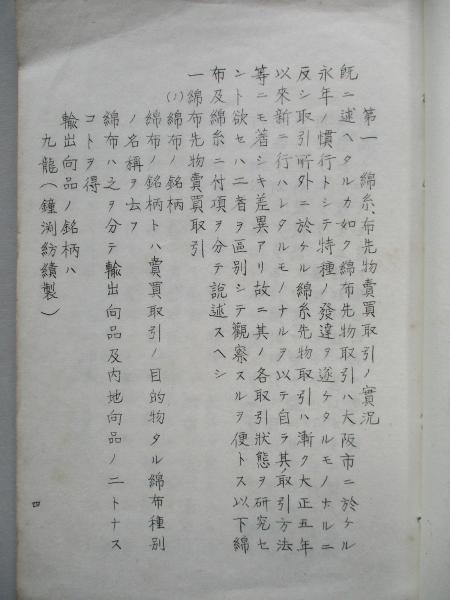 第一 綿糸布先物賣買取引ノ實況
既ニ述ヘタルカ如ク綿布先物取引ハ大阪市ニ於ケル
永年ノ慣行トシテ特種ノ發達ヲ遂ケタルモノナルニ
反シ取引所外ニ於ケル綿糸先物取引ハ漸ク大正五年
以來新ニ行ハレタルモノナルヲ以テ自ラ其ノ取引方法
等ニモ著シキ差異アリ故ニ其ノ各取引狀態ヲ研究セ
ント欲セハ二者ヲ區別シテ觀察スルヲ便トス以下綿
布及綿糸ニ付項ヲ分テ說述スヘシ
一綿布先物賣買取引
(1)綿布ノ銘柄
綿布ノ銘柄トハ賣買取引ノ目的物タル綿布種別
ノ名稱ヲ云フ
綿布ハ之ヲ分テ輸出向品及內地向品ノ二トナス
コトヲ得
輸出向品ノ銘柄ハ
九龍(鐘淵紡績製)
四